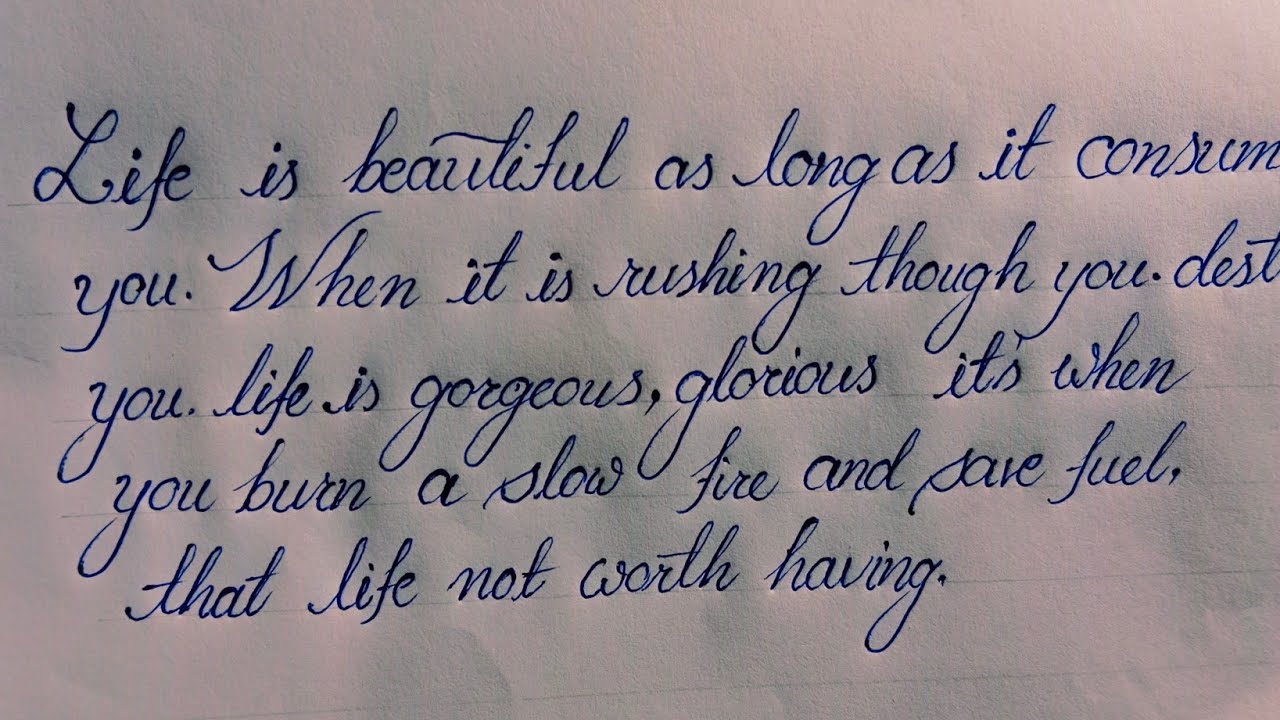 Life is beautiful as long as it consum
you. When it is rushing though you. dest
you. life is gorgeous, glorious it's when
you burn a slow fire and save fuel,
that life not worth having.